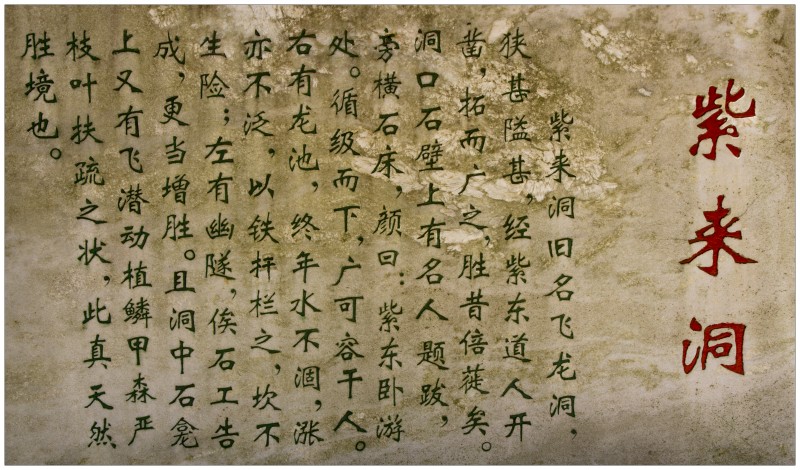 紫来洞
紫来洞旧名飞龙洞，
狭甚隘甚，经紫东道人开
凿，拓而广之，胜昔倍蓰矣。
洞口石壁上有名人题跋，
旁横石床，颜曰：紫东卧游
处。循级而下，广可容千人。
右有龙池，终年水不涸，涨
亦不泛，以铁杆栏之，坎不
生险；左有幽隧，俟石工告
成，更当增胜。且洞中石龛
上又有飞潜动植鳞甲森严
枝叶扶疏之状，此真天然
胜境也。